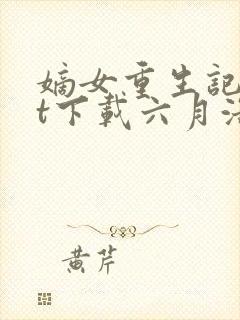 嫡女重生記
t下載六月
黄芹